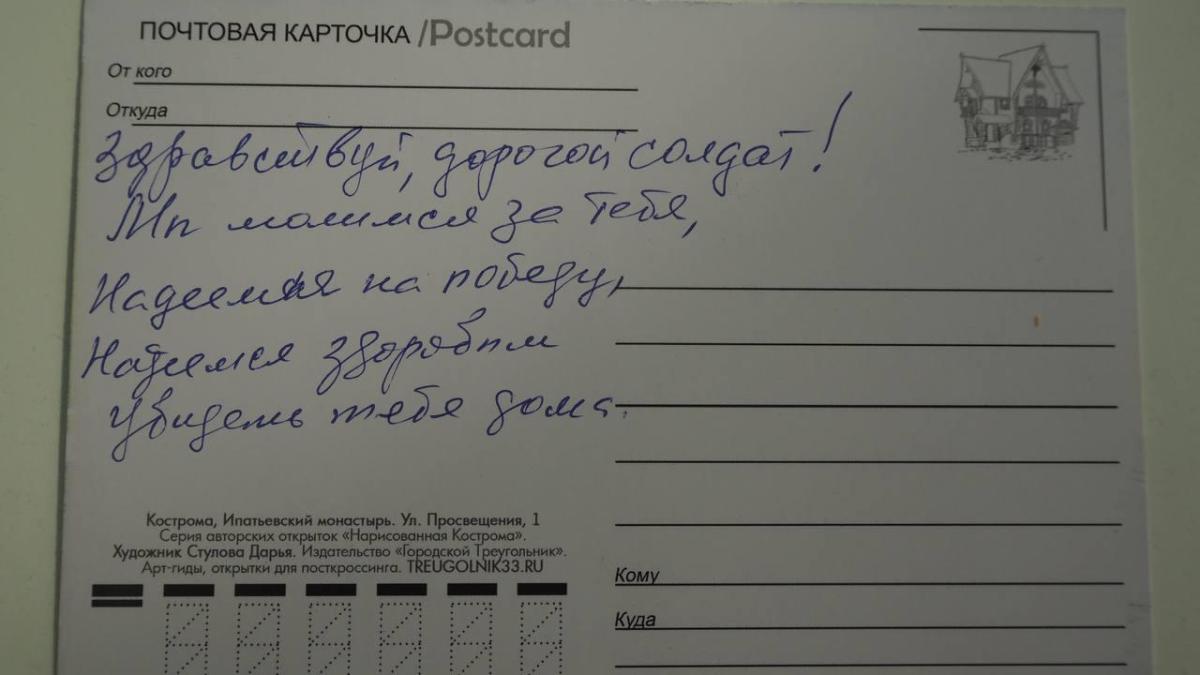 ПОЧТОВАЯ КАРТОЧКА /Postcard
От кого
Откуда
Здравствуй, дорогой солдат!
Мы молимся за тебя,
Надеемся на победу,
Надеемся здоровым
увидеть тебя дома.
Кострома, Ипатьевский монастырь. Ул. Просвещения, 1
Серия авторских открыток «Нарисованная Кострома».
Художник Стулова Дарья. Издательство «Городской Треугольник».
Арт-гиды, открытки для посткроссинга. TREUGOLNIK33.RU
Кому
Куда